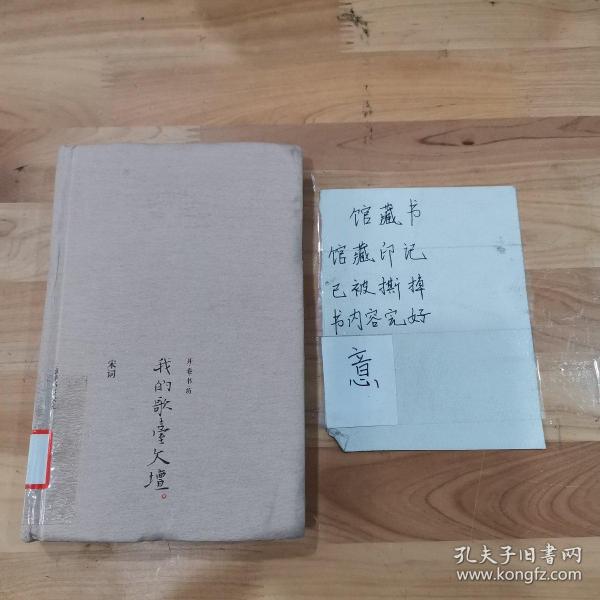 开卷书坊
我的歌台文坛
宋词
馆藏书
馆藏印记
已被撕掉
书内容完好
意
孔夫子旧书网
www.kongfz.com